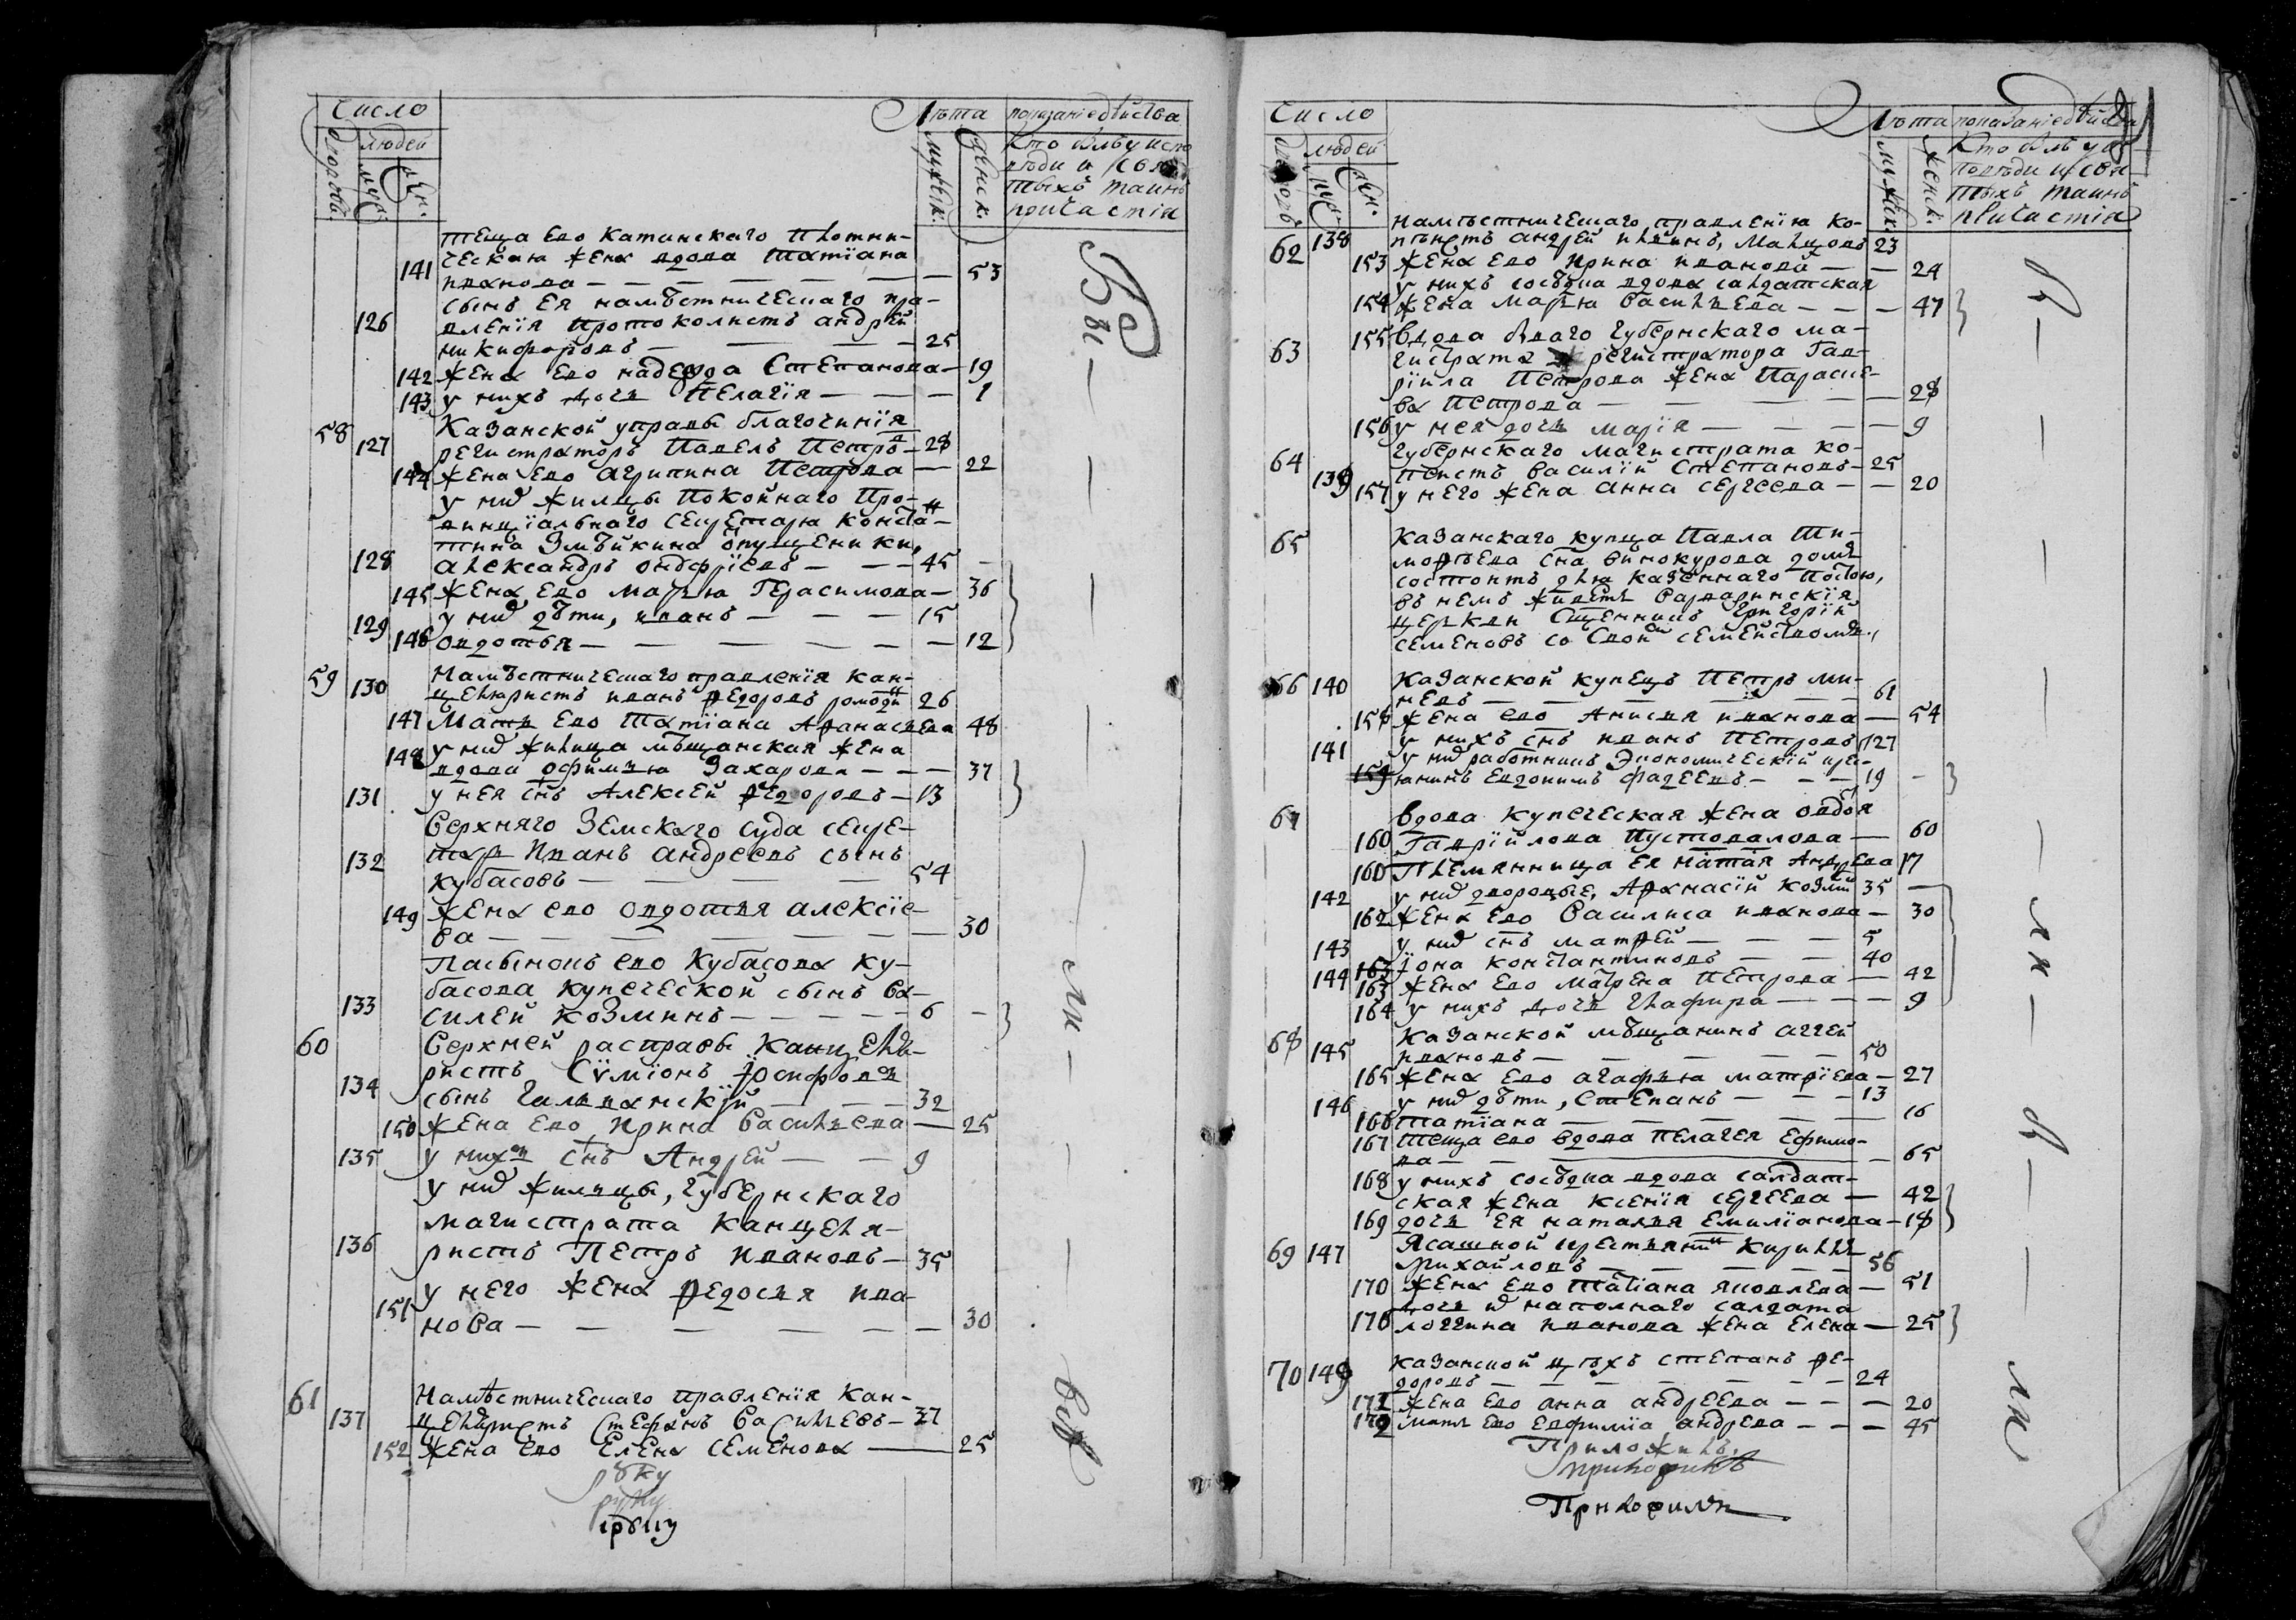 Число
людей
Лѣта
показаніе дѣйства
дворовъ
муж.
жен.
мужск.
женск.
Кто былъ у испо
вѣди и Свя
тыхъ таинъ
причастія
теща ево Катинскаго плотни-
ческая жена вдова Татіана
141 Иванова — 53
сынъ ея намѣстническаго пра-
126 вленія протоколистъ андрей
никифоровъ — 25
142 жена ево надежда Степанова — 19
143 у нихъ дочь Пелагія — 1
58 Казанской управы благочинія
127 регистраторъ Павелъ Петро в — 28
144 жена ево агрипина Петрова — 22
у ни х жилцы покойнаго про-
винціальнаго секретаря Конста н
тина Змѣикина о пущеники,
128 александръ ондфріевъ — 45
145 жена ево марья Герасимова — 36
129 у ни х дѣти, иванъ — 15
146 овдотья — 12
59 130 Намѣстническаго правленія кан-
целяристъ иванъ Федоровъ 26
147 Мать ево Татіана Афанасьева 48
148 у ни х жилица мѣщанская жена
вдова офимья Захарова — 37
131 у нея снъ Алексей Федоровъ — 13
Верхняго Земскаго Суда секре-
132 тарь Иванъ Андреевъ сынъ
Кубасовъ — 54
149 жена ево овдотья алексіе-
ва — 30
Пасынокъ ево Кубасова ку-
басова купеческой сынъ Ва-
133 силей Козминъ — 6
60 Верхней расправы Канцеля-
134 ристъ Сѵміонъ Іосифовъ
сынъ — 32
150 жена ево Ирина Васильева — 25
135 у них снъ Андрей — 9
у ни х жильцы, губернскаго
магистрата Канцеля-
136 ристъ Петръ Ивановъ — 35
151 у него жена Федосья ива
нова — 30
61 Намѣстническаго правленія кан-
137 целяристъ Стефанъ Васильевъ — 37
152 жена ево Елена Семенова — 25
рꙋку
руку
рꙋку
Бы — — — ли — — всѣ
Число
людей
Лѣта
показаніе дѣйства
дворовъ
муж.
жен.
мужск.
женск.
Кто былъ у ис
повѣди и Свя
тыхъ таинъ
причастія
намѣстническаго правленія ко-
62 138 пѣистъ андрей ильинъ, Малцовъ 23
153 жена ево Ирина иванова — 24
у нихъ сосѣдка вдова салдатская
154 жена Марья Васильева — 47
155 вдова бываго Губернскаго ма-
63 гистрата регистратора Гав-
ріила Петрова жена Параске-
ва Петрова — 28
156 у нея дочь марія — 9
64 Губернскаго магистрата ко-
139 пеистъ василій Степановъ — 25
157 у него жена анна сергеева — 20
65 Казанскаго купца Павла Ти-
мофѣева сна винокурова домъ
состоитъ для казеннаго постою,
въ немъ живетъ варваринскія
церкви Священникъ Григорій
семеновъ со Своим семействомъ,
66 140 Казанской купецъ Петръ ми-
неевъ — 61
158 жена ево Анисья иванова — 54
141 у нихъ снъ иванъ Петровъ 27
у ни х работникъ Экономическій кре-
159 стьянинъ Евдокимъ фадеевъ — 19
67 вдова купеческая жена овдотя
160 Гаврійлова Пустовалова — 60
Племянница ея наталя Андреева 17
142 у ни х дворовые, Афанасій Козми н 35
162 жена ево Василиса иванова — 30
143 у ни х снъ матфей — 5
144 Іона константиновъ — 40
163 жена ево Матрена Петрова — 42
164 у нихъ дочь Глафира — 9
68 145 Казанской мѣщанинъ аггей
ивановъ — 50
165 жена ево агафья матвіева — 27
146 у ни х дѣти, Степанъ — 13
166 татіана — 16
167 теща ево вдова пелагея Ефимо-
ва — 65
168 у нихъ сосѣдка вдова салдат-
ская жена ксенія сергеева — 42
169 дочь ея наталья Емиліанова — 18
69 147 Ясашной крестьяни н Кирилъ
Михайловъ — 56
170 жена ево Татіана яковлева — 51
дочь и наполнаго салдата
логгина иванова жена Елена — 25
70 149 казанской цѣхъ степанъ фе-
доровъ — 24
жена ево анна андреева — 20
мать ево евфимія андрева — 45
Приложилъ
приложилъ
Приложилъ